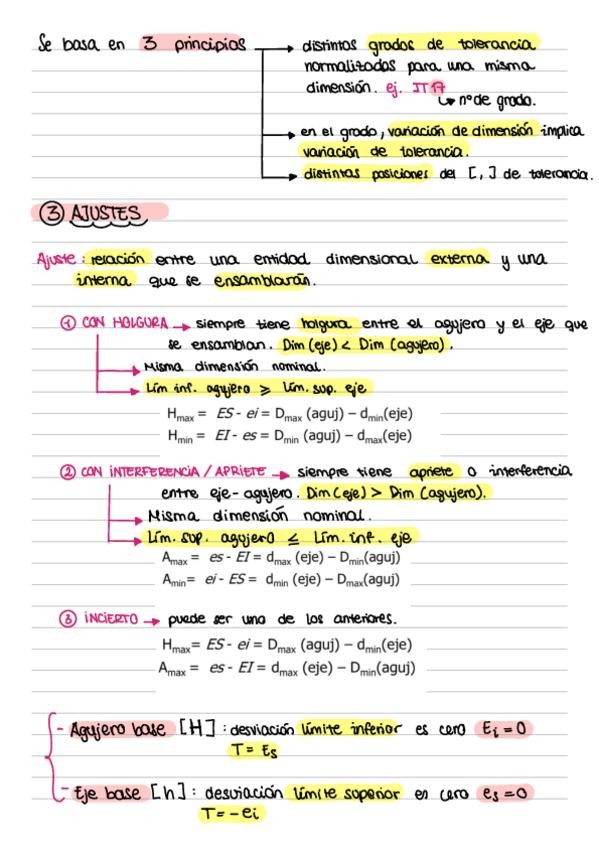 Se basa en 3 principios → distintos grados de tolerancia
normalizados para una misma
dimensión. ej. IT17
↳ nº de grado.
→ en el grado, variación de dimensión implica
variación de tolerancia.
→ distintas posiciones del [,] de tolerancia.
③ AJUSTES
Ajuste: relación entre una entidad dimensional externa y una
interna que se ensamblarán.
① CON HOLGURA → siempre tiene holgura entre el agujero y el eje que
se ensamblan. Dim (eje) < Dim (agujero).
→ Misma dimensión nominal.
→ Lím inf. agujero ⩾ Lím. sup. eje
Hmax = ES - ei = Dmax (aguj) – dmin(eje)
Hmin = EI - es = Dmin (aguj) – dmax(eje)
② CON INTERFERENCIA / APRIETE → siempre tiene apriete o interferencia
entre eje-agujero. Dim (eje) > Dim (agujero).
→ Misma dimensión nominal.
→ Lím. sup. agujero ≤ Lím. inf. eje
Amax = es - EI = dmax (eje) – Dmin(aguj)
Amin = ei - ES = dmin (eje) – Dmax(aguj)
③ INCIERTO → puede ser uno de los anteriores.
Hmax = ES - ei = Dmax (aguj) – dmin(eje)
Amax = es - EI = dmax (eje) – Dmin(aguj)
- Agujero base [H]: desviación límite inferior es cero Ei = 0
T = Es
- Eje base [h]: desviación límite superior es cero es = 0
T = - ei